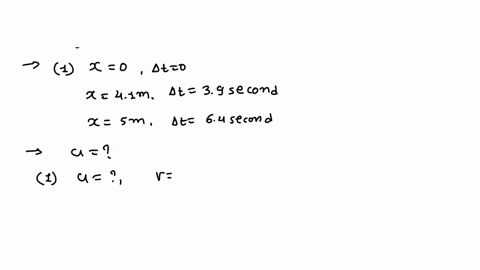 → (1) x=0, Δt=0
x=4.1m, Δt=3.9 second
x=5m, Δt=6.4 second
→ u=?
(1) u=?, v=